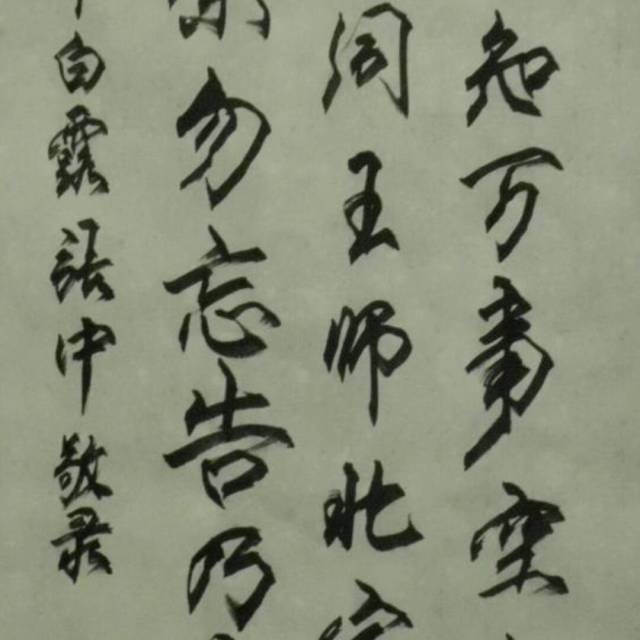 知万事空
同王师北定
祭勿忘告乃
白露张中敬录